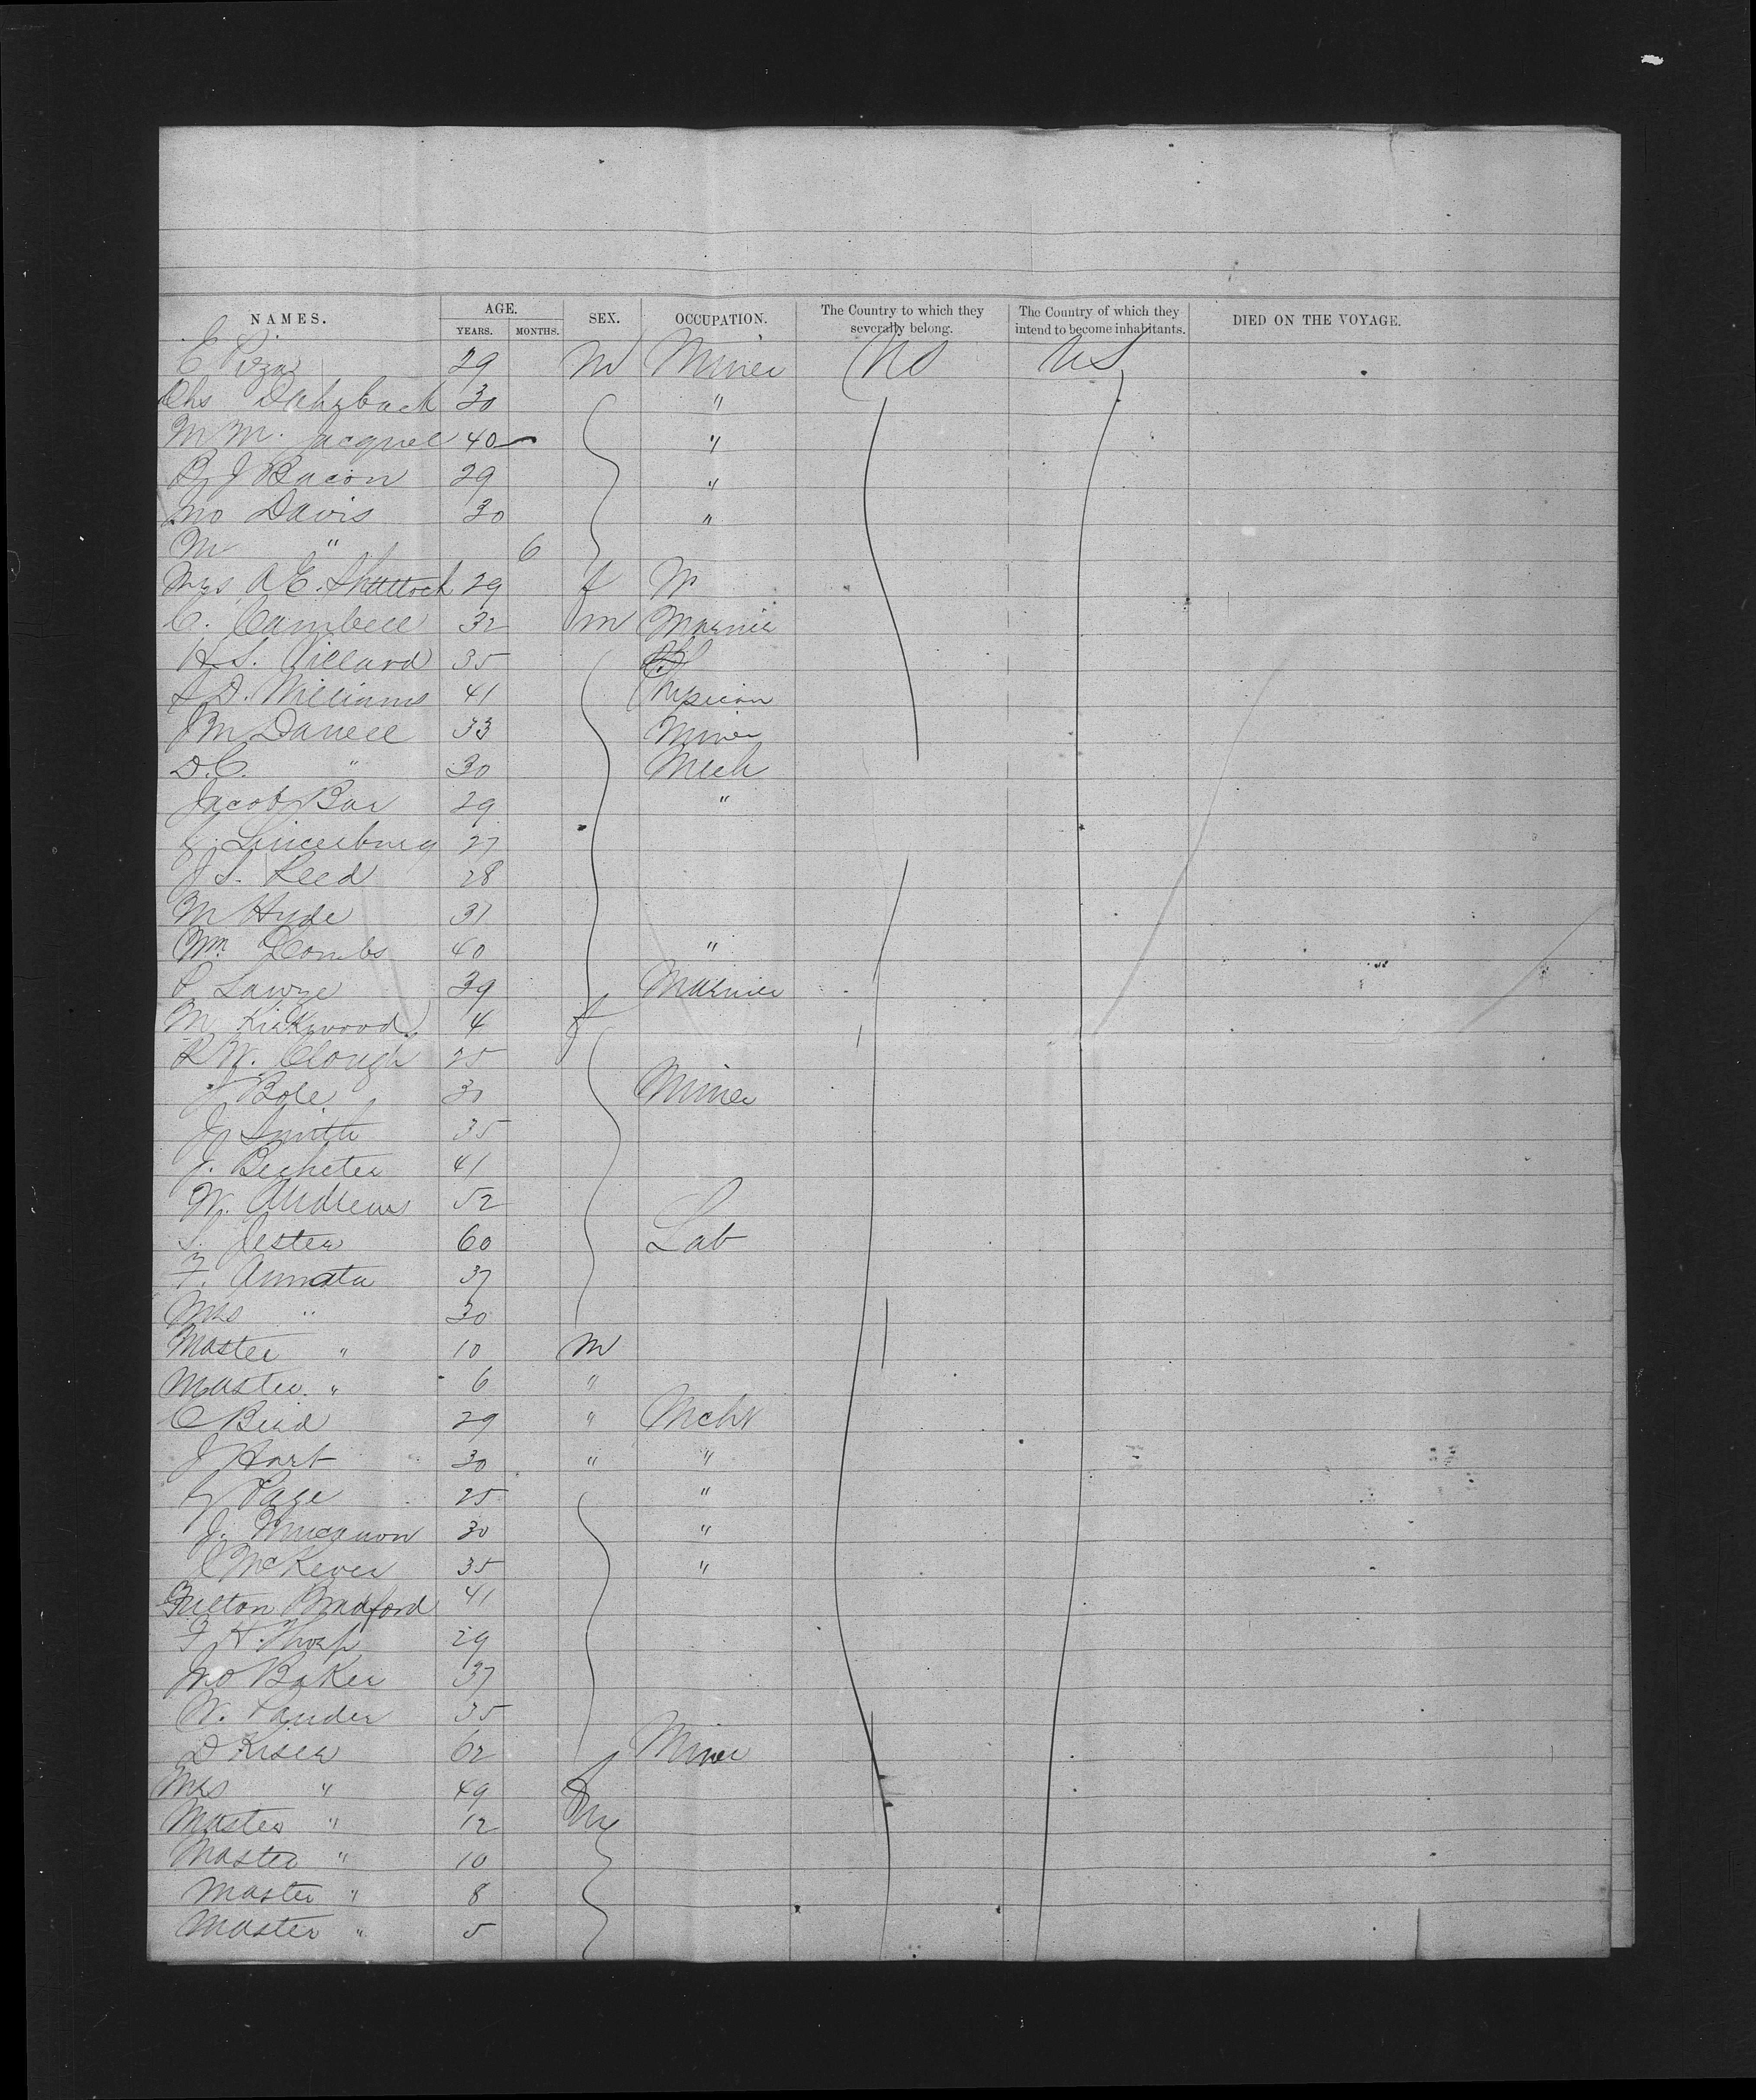 NAMES. AGE. YEARS. MONTHS. SEX. OCCUPATION. The Country to which they severally belong. The Country of which they intend to become inhabitants. DIED ON THE VOYAGE.
E 29 M Miner US US
Chs Dahrbach 30 "
M M. Jacquel 40 "
J Bacon 29 "
Jno Davis 30 "
M " 6
Mrs A E. Shattock 29 f
C. Cambell 32 m Marnier
H. S. Gillard 35
D. Williams 41 Physician
J M Danell 33 Miner
D. C. " 30 Mech
Jacob Bar 29 "
27
J S. Reed 28
M Hyde 31
Wm Combs 40 "
P Lawye 39 Marnier
M Kirkwood 4 f
R W. Clough 25
J Bole 31 Miner
J Smith 35
J. 41
W. Andrews 52
S. Jester 60 Lab
F. 37
Mrs " 30
Master " 10 M
Master " 6 "
C Bird 29 " Mcht
J Hart 30 " "
G Page 25 "
J. 30 "
J McKever 35 "
Bradford 41
F H. Thorp 29
Jno Baker 37
W. 35
D Kiser 62 Miner
Mrs " 49 f
Master " 12 M
Master " 10
Master " 8
Master " 5